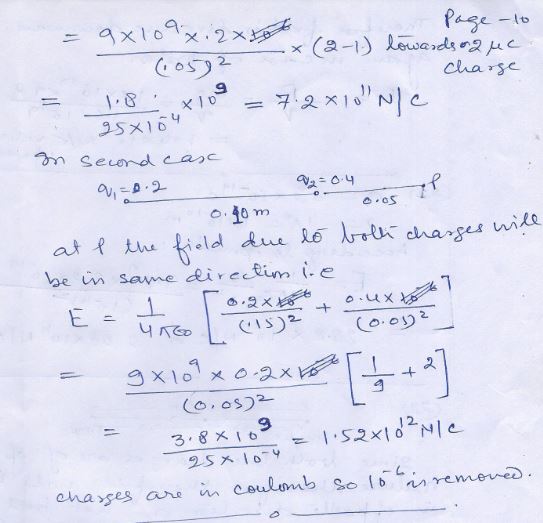 Page - 10
= 9×10⁹ × .2 × / (.05)² × (2-1) towards 0.2 μc charge
= 1.8 / 25×10⁻⁴ ×10⁹ = 7.2×10¹¹ N/C
In second case
q₁=0.2 q₂=0.4 P
0.10m 0.05
at P the field due to both charges will
be in same direction i.e
E = 1/4π∈₀ [ 0.2×10⁻⁶ / (.15)² + 0.4×10⁻⁶ / (0.05)² ]
= 9×10⁹ × 0.2×10⁻⁶ / (0.05)² [ 1/9 + 2 ]
= 3.8×10⁹ / 25×10⁻⁴ = 1.52×10¹² N/C
charges are in coulomb so 10⁻⁶ is removed.